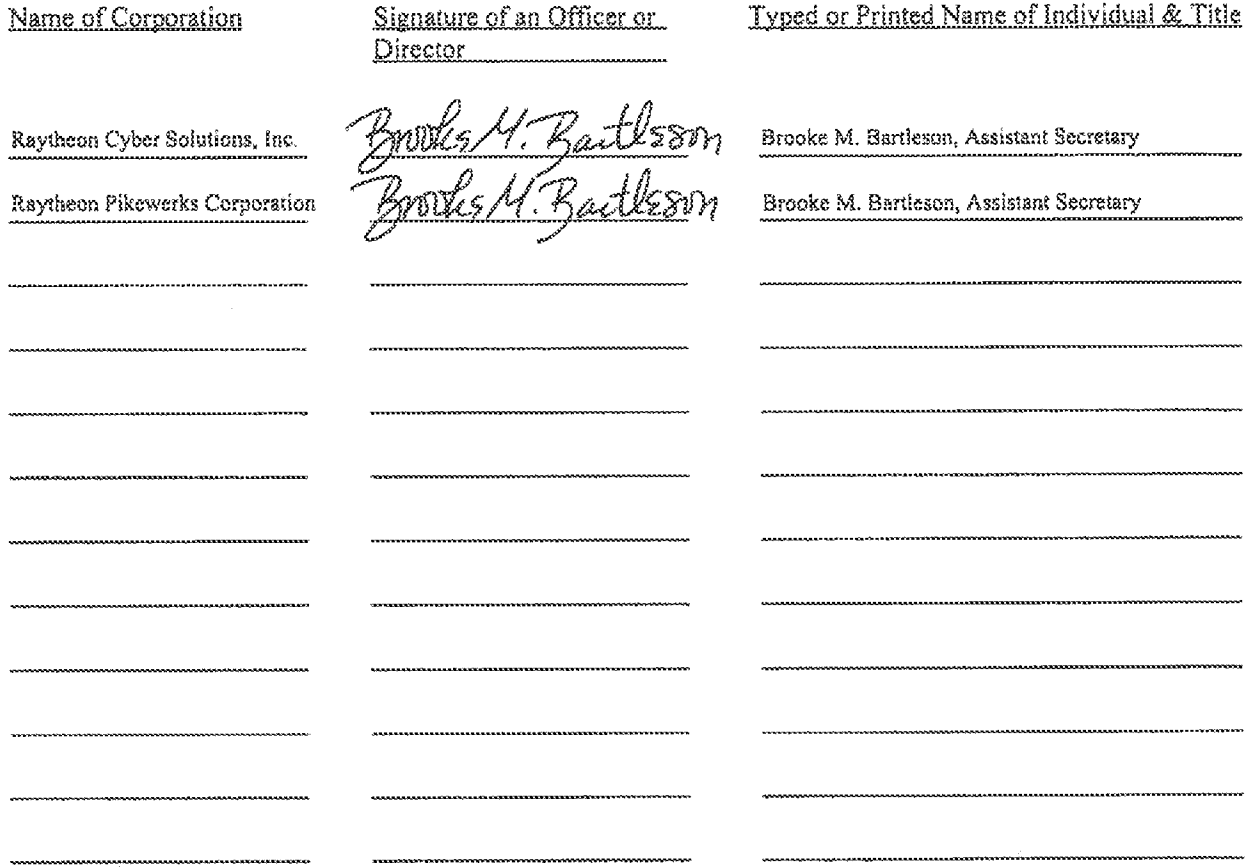 Name of Corporation
Signature of an Officer or
Director
Typed or Printed Name of Individual & Title
Raytheon Cyber Solutions, Inc.
Brooke M. Bartleson
Brooke M. Bartleson, Assistant Secretary
Raytheon Pikewerks Corporation
Brooke M. Bartleson
Brooke M. Bartleson, Assistant Secretary